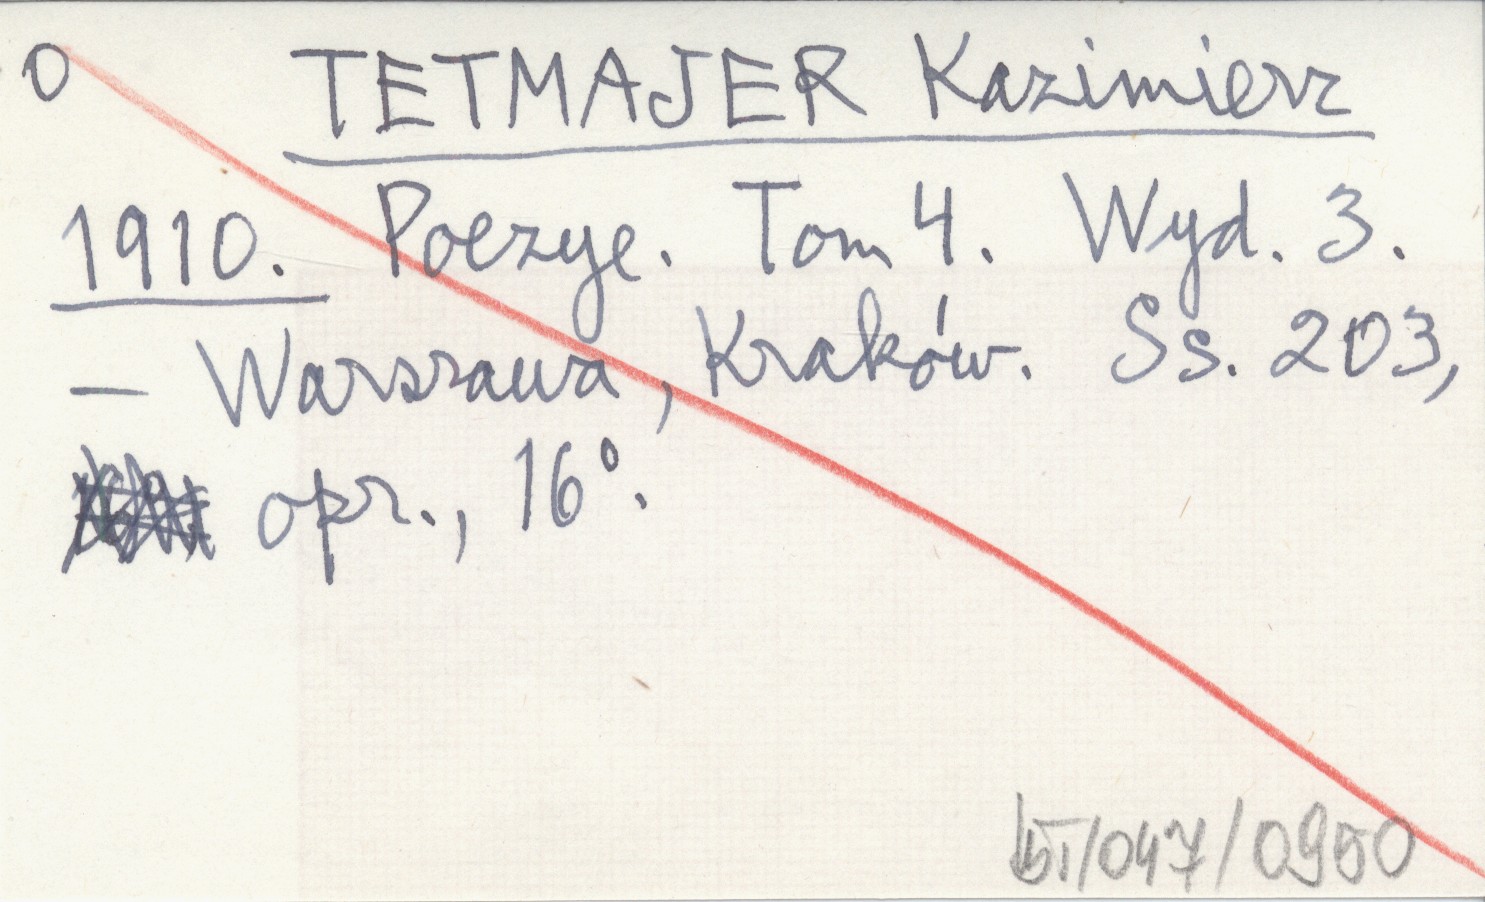 O TETMAJER Kazimierz
1910. Poezye. Tom 4. Wyd. 3.
— Warszawa, Kraków. Ss. 203,
opr., 16°.
/047/0950